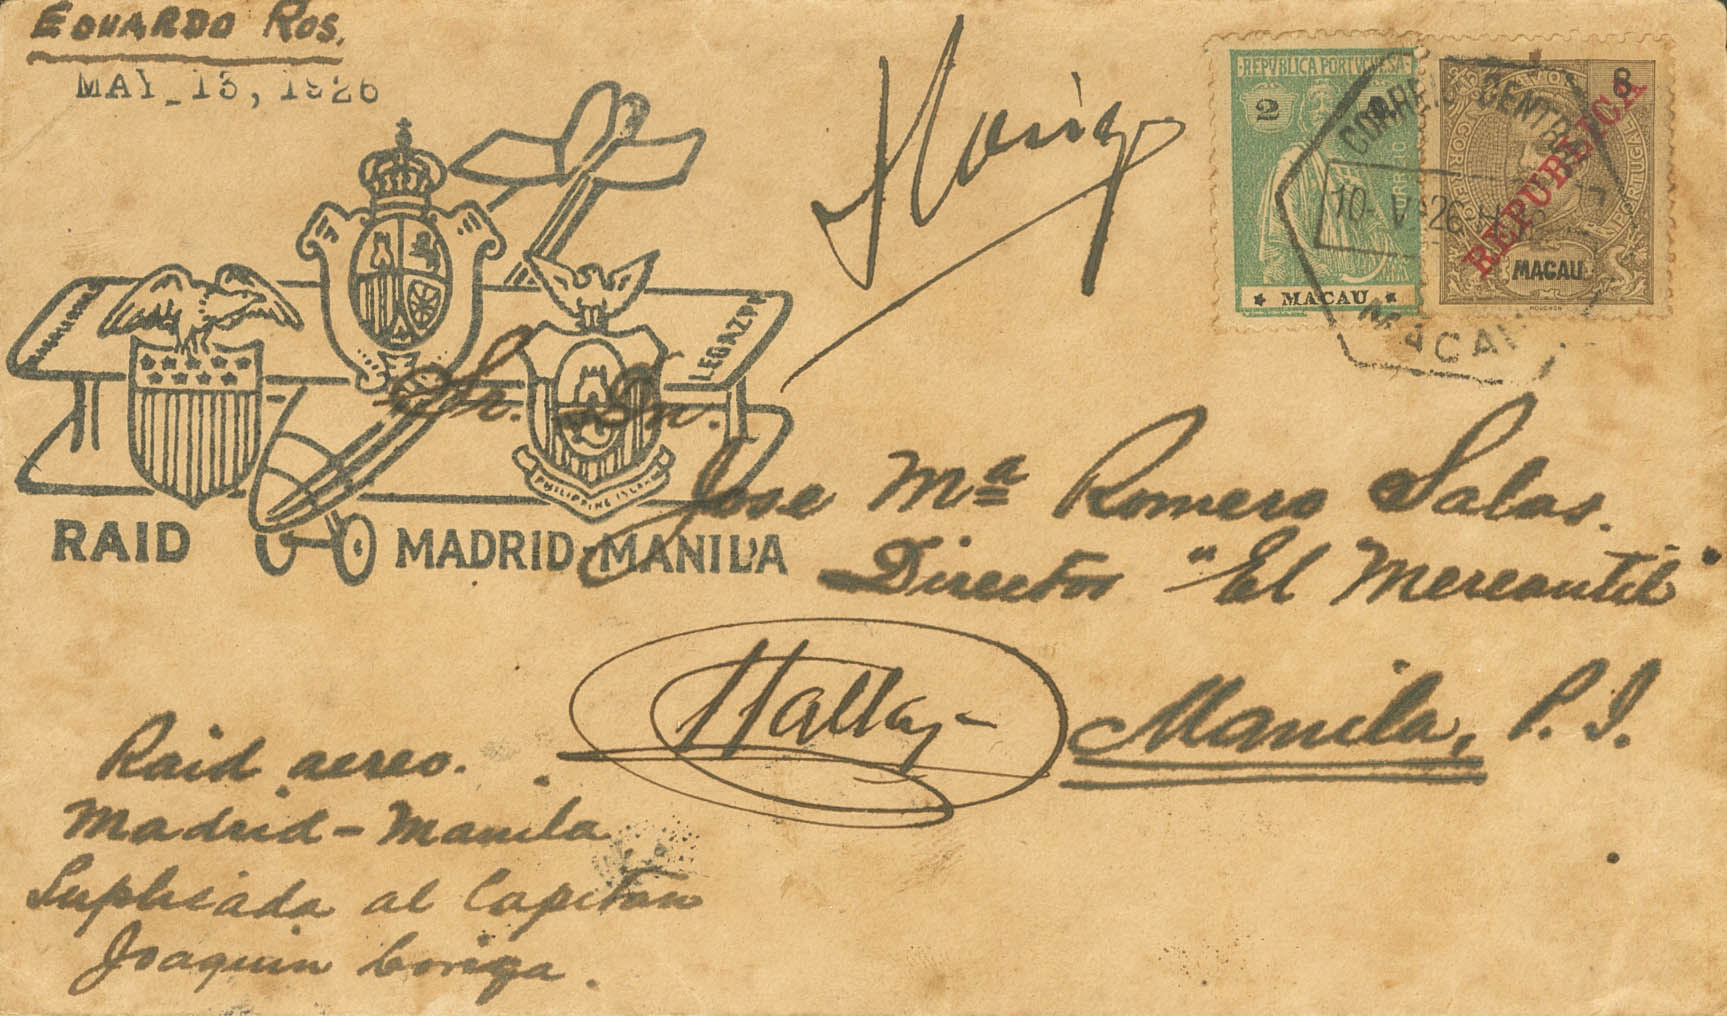 EDUARDO ROS.
MAY 13, 1926
MAGALLANES
LEGAZPI
PHILIPPINE ISLANDS
RAID MADRID-MANILA
Loriga
REPVBLICA PORTVGVESA
2
CORREIO
MACAU
8
CORREIOS
PORTUGAL
REPUBLICA
MACAU
MOUCHON
CORREIO CENTRAL
10- V 26
MACAU
Sr. Dn.
Jose Mª Romero Salas.
Director "El Mercantil"
Manila, P. I.
Raid aereo.
Madrid-Manila
Suplicada al Capitan
Joaquin Loriga.